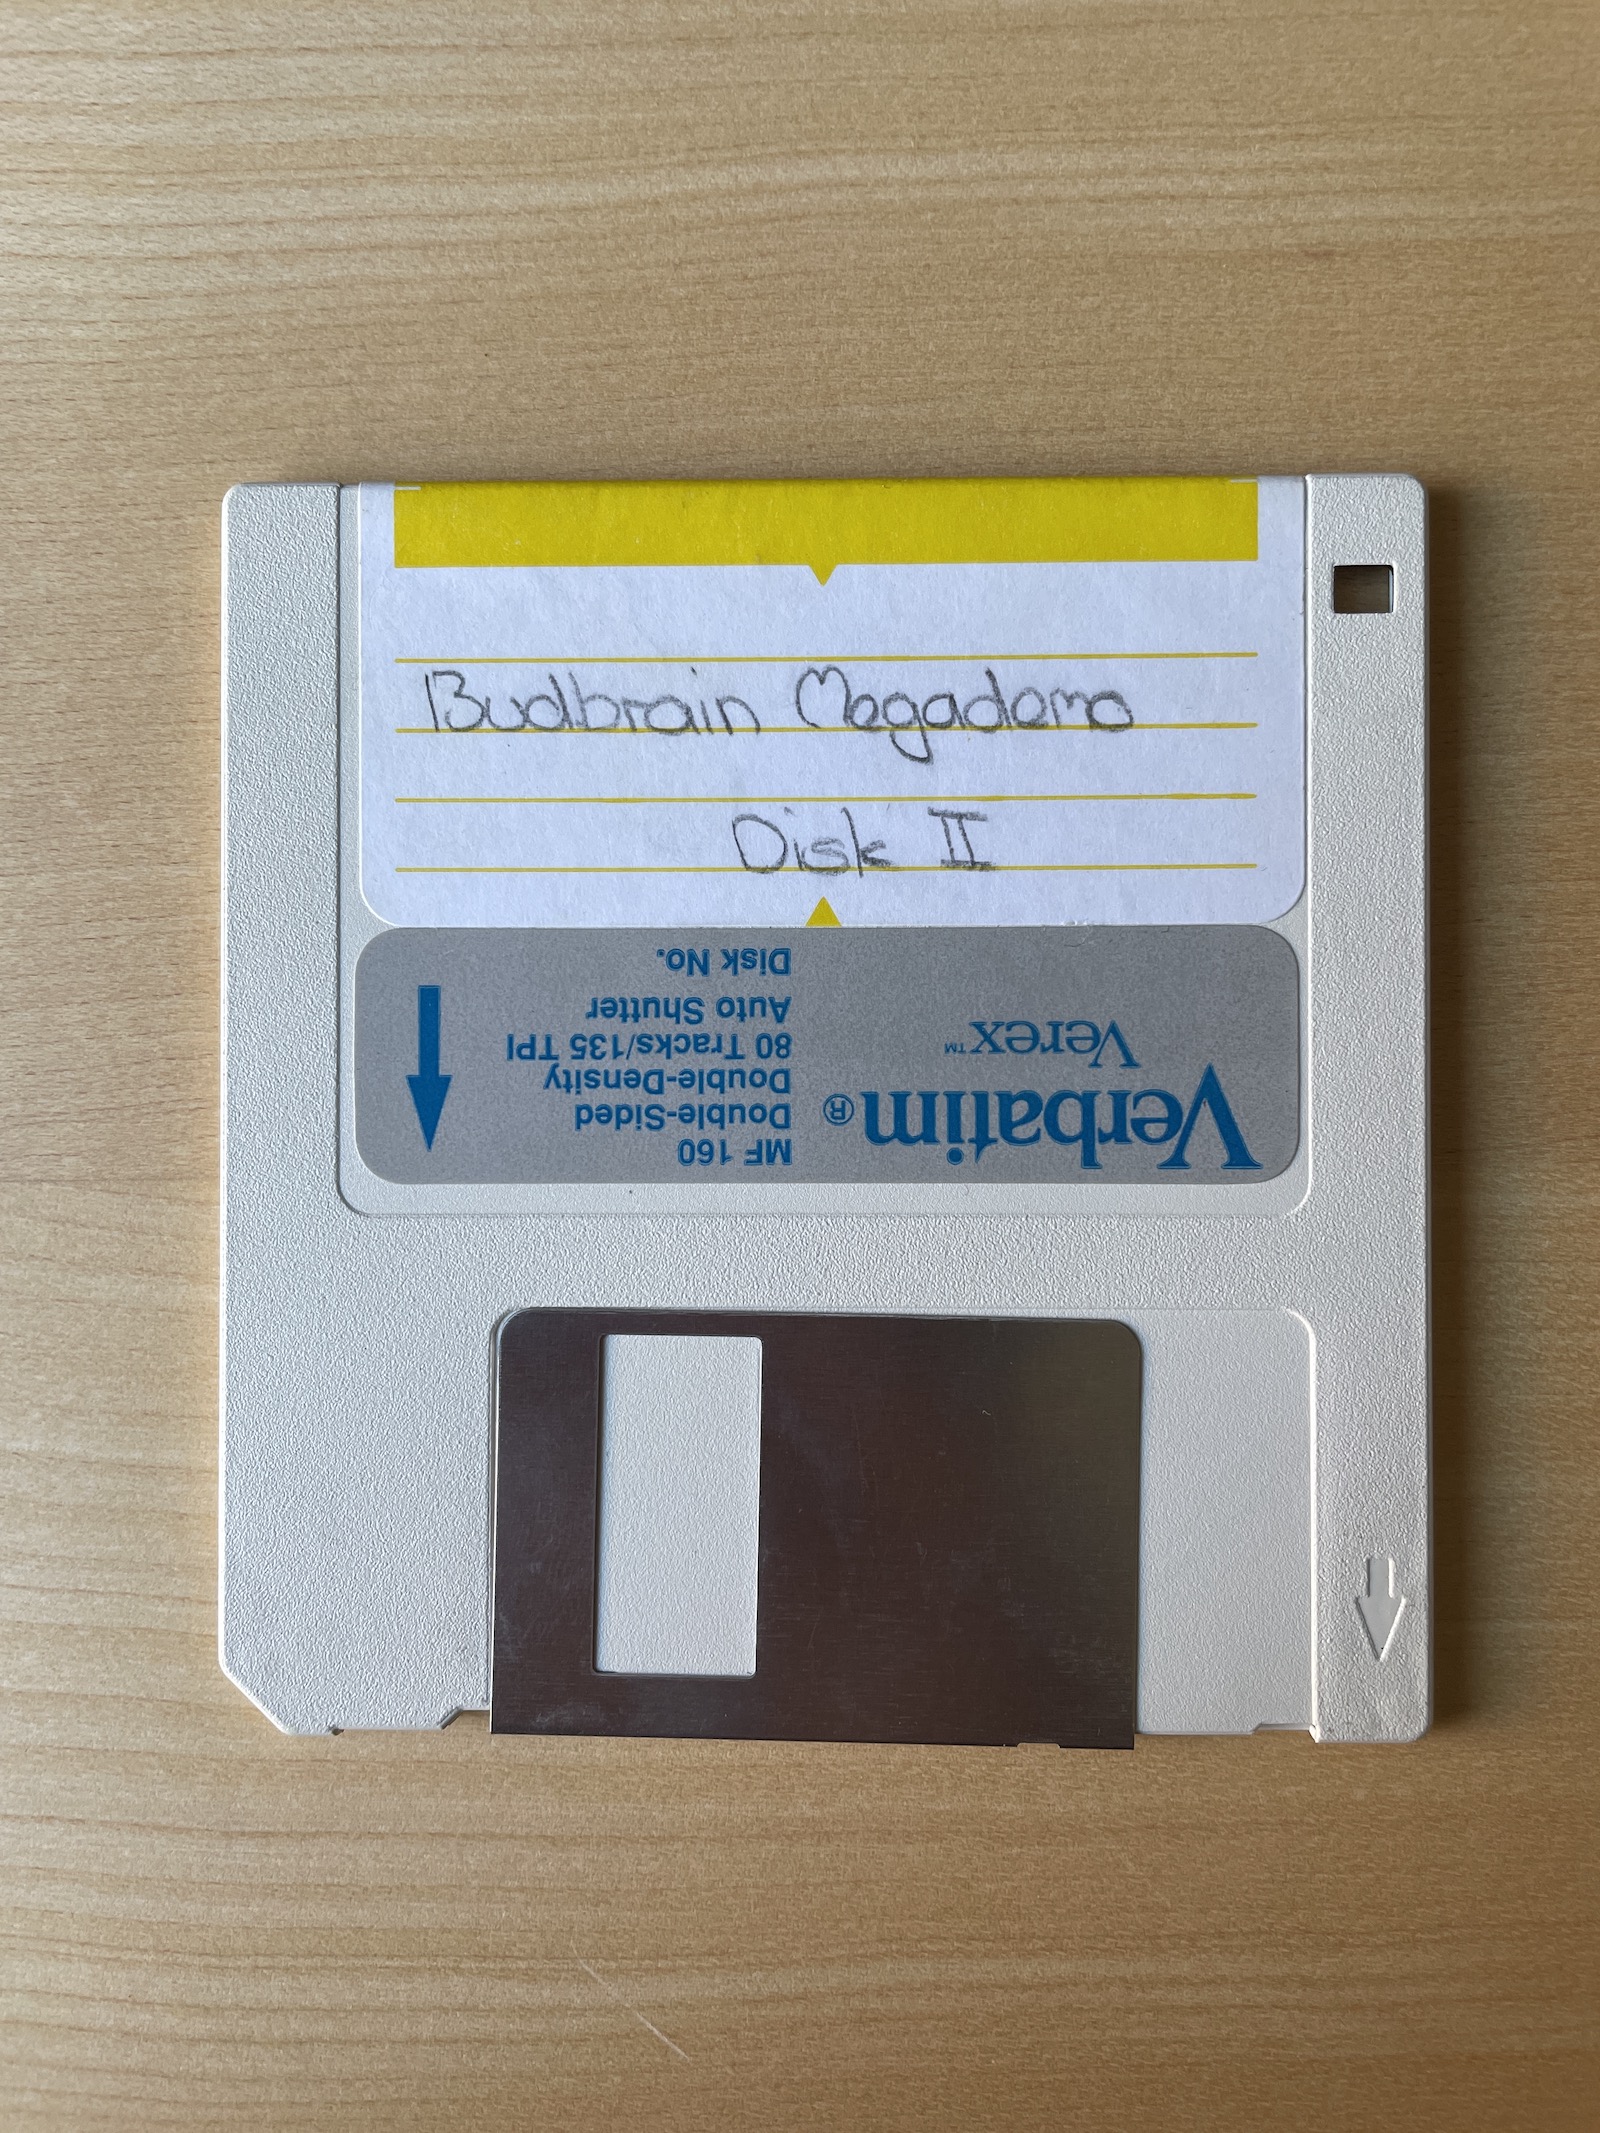 Budbrain Megademo
Disk II
Verbatim®
Verex™
MF 160
Double-Sided
Double-Density
80 Tracks/135 TPI
Auto Shutter
Disk No.